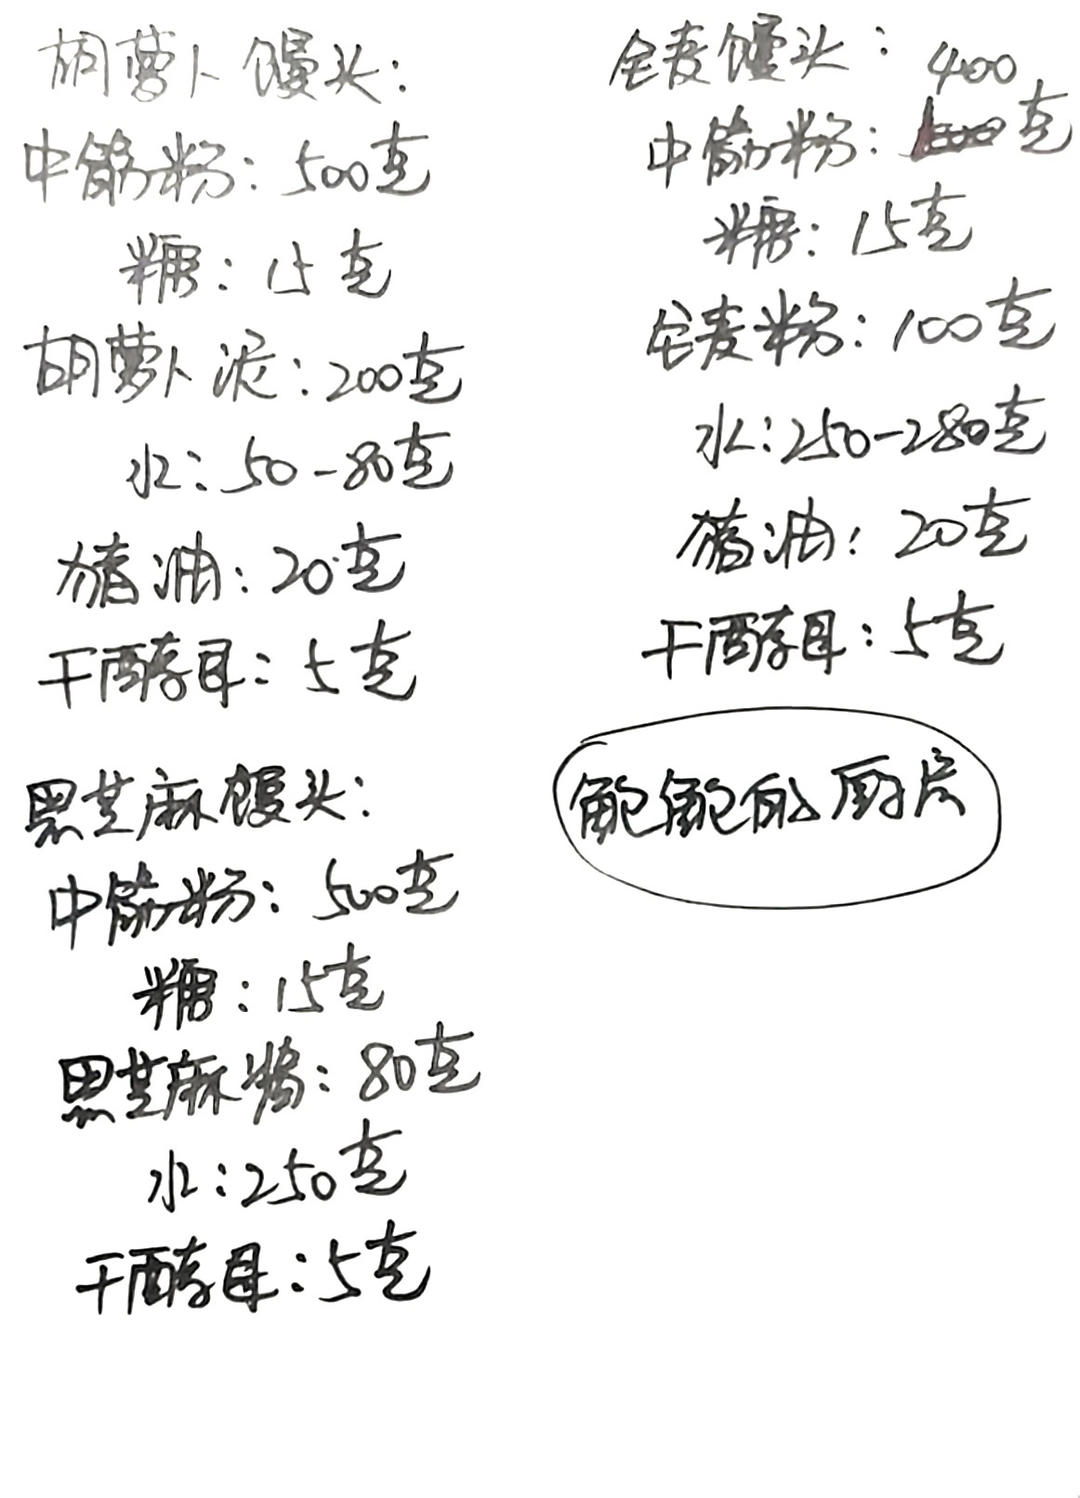 胡萝卜馒头:
中筋粉: 500克
糖: 15克
胡萝卜泥: 200克
水: 50-80克
猪油: 20克
干酵母: 5克
黑芝麻馒头:
中筋粉: 500克
糖: 15克
黑芝麻酱: 80克
水: 250克
干酵母: 5克
全麦馒头:
400
中筋粉: 克
糖: 15克
全麦粉: 100克
水: 250-280克
猪油: 20克
干酵母: 5克
的厨房